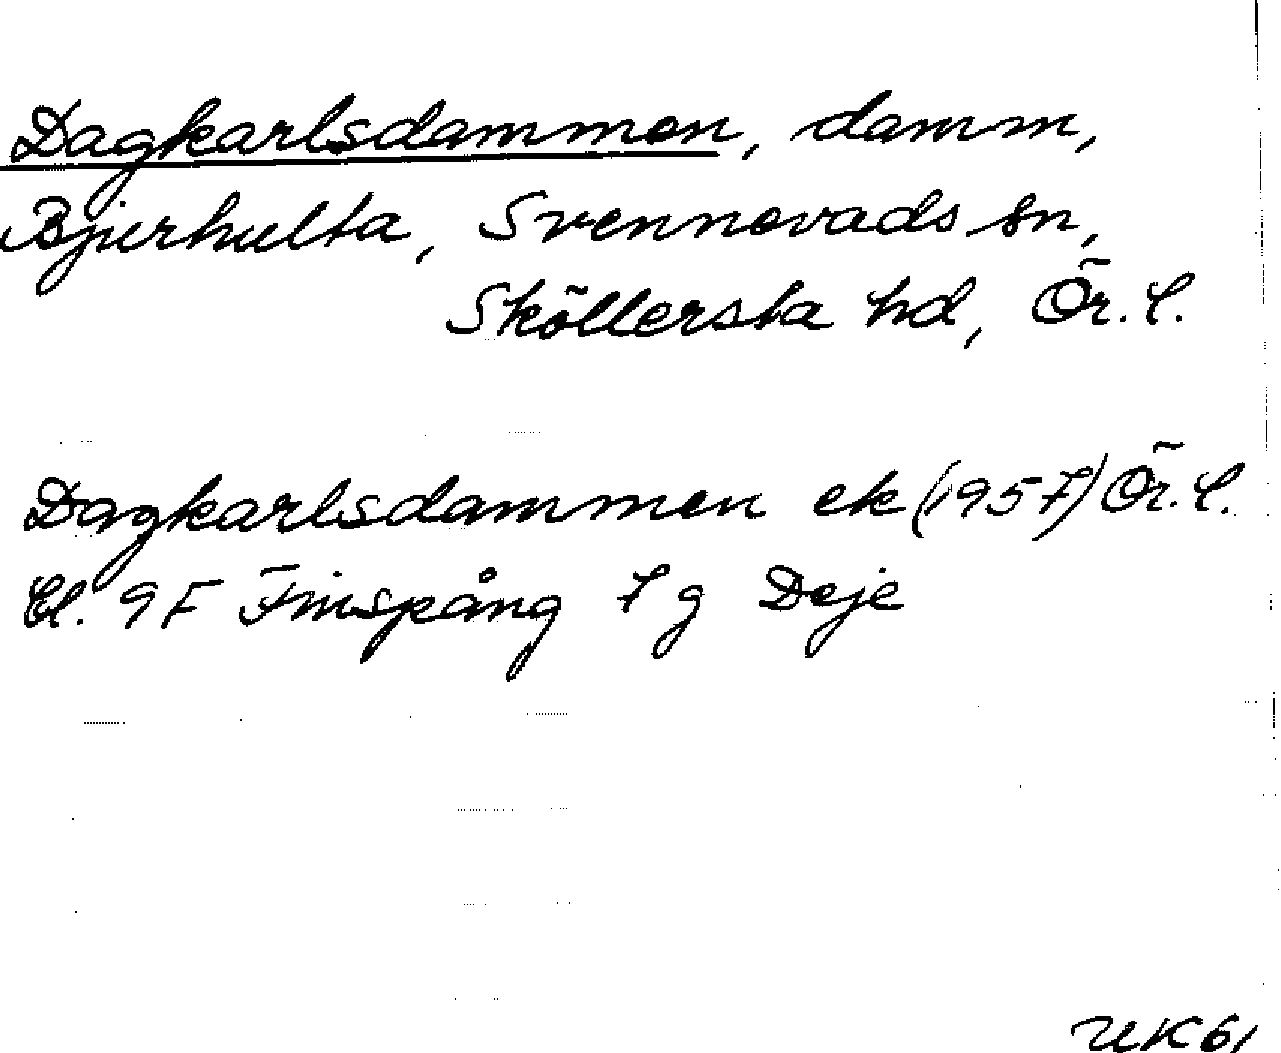 Dagkarlsdammen, damm,
Bjurhulta, Svennevads sn,
Sköllersta hd, Ör. l.
Dagkarlsdammen ek (1957) Ör. l.
Bl. 9F Finspång 7 g Deje
UK 61